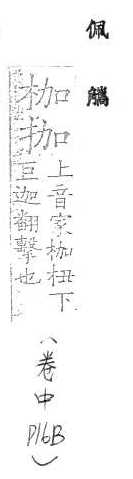 佩觿
枷拁
上音家枷杻下
巨迦翻擊也
(卷中 P16B)